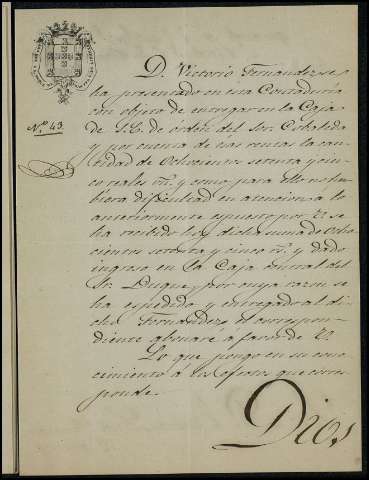 D. Victorio Fernandez se
ha presentado en esta Contaduría
con objeto de entregar en la Caja
Nº 43.
de S. E. de órden del Sor. Cobaleda
y por cuenta de sus rentas la can-
tidad de Ochocientos setenta y cin-
co reales vn. y como para ello no hu-
biera dificultad en atencion a lo
anteriormente espuesto por V. se
ha recibido hoy dicha suma de Ocho-
cientos setenta y cinco rs. y dado
ingreso en la Caja central del
Sr. Duque, por cuya razon se
ha espedido y entregado al di-
cho Fernandez el correspon-
diente abonaré a favor de V.
Lo que pongo en su cono-
cimiento á los efectos que corres-
ponde.
Dios